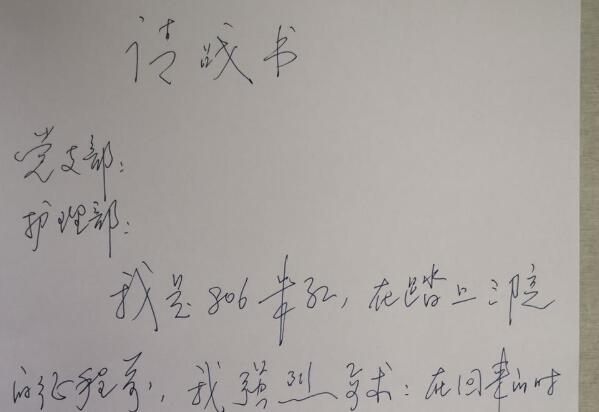 请战书
党支部:
护理部:
我是806,在踏上院
的征程前,我强烈要求:在回来的时